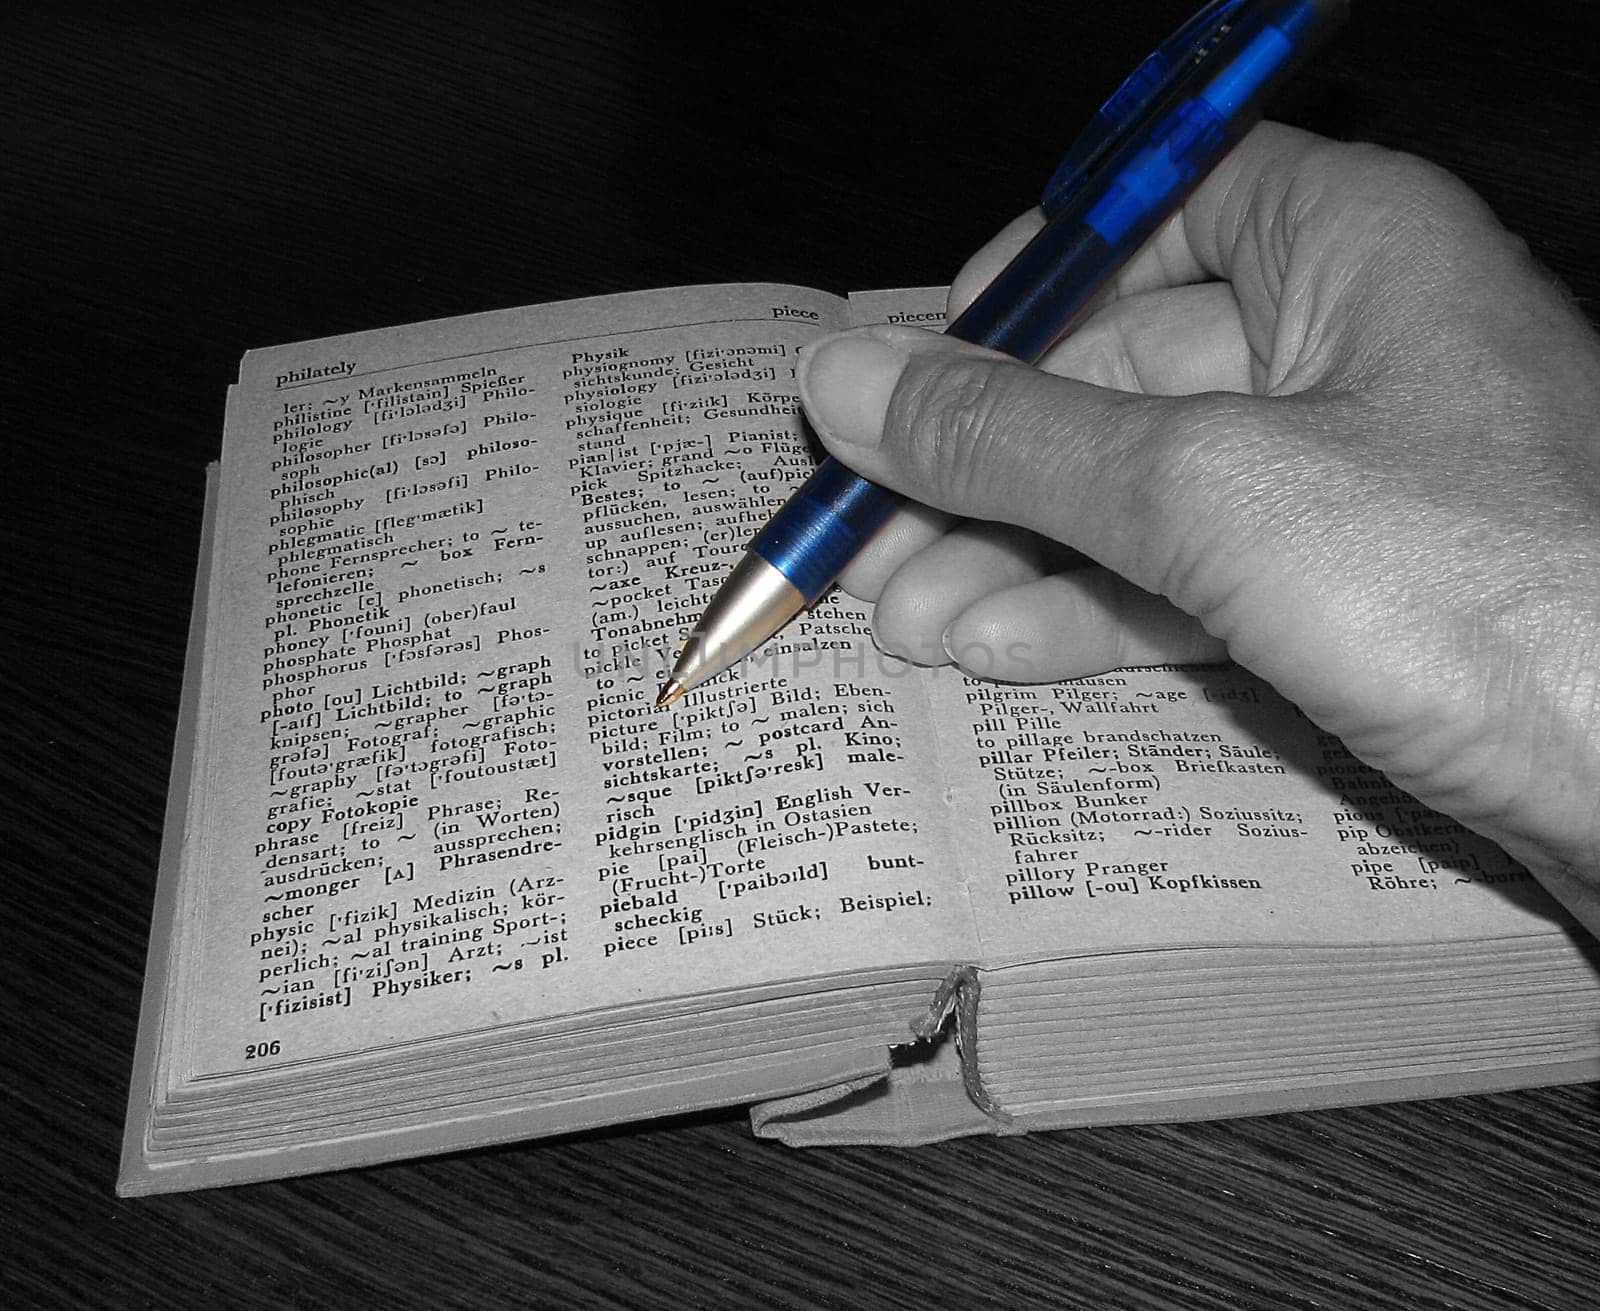 philately
ler; ~y Markensammeln
philistine ['filistain] Spießer
philology [fi'lɔlədʒi] Philo-
logie
philosopher [fi'lɔsəfə] Philo-
soph
philosophic(al) [sɔ] philoso-
phisch
philosophy [fi'lɔsəfi] Philo-
sophie
phlegmatic [fleg'mætik]
phlegmatisch
phone Fernsprecher; to ~ te-
lefonieren; ~ box Fern-
sprechzelle
phonetic [e] phonetisch; ~s
pl. Phonetik
phoney ['founi] (ober)faul
phosphate Phosphat
phosphorus ['fɔsfərəs] Phos-
phor
photo [ou] Lichtbild; ~graph
[-aıf] Lichtbild; to ~graph
knipsen; ~grapher [fə'tɔ-
grəfə] Fotograf; ~graphic
[foutə'græfik] fotografisch;
~graphy [fə'tɔgrəfi] Foto-
grafie; ~stat ['foutoustæt]
copy Fotokopie
phrase [freiz] Phrase; Re-
densart; to ~ (in Worten)
ausdrücken; ~ aussprechen;
~monger [ʌ] Phrasendre-
scher
physic ['fizik] Medizin (Arz-
nei); ~al physikalisch; kör-
perlich; ~al training Sport-;
~ian [fi'ziʃən] Arzt; ~ist
['fizisist] Physiker; ~s pl.
206
piece
Physik
physiognomy [fizi'ɔnəmi]
sichtskunde; Gesicht
physiology [fizi'ɔlədʒi]
siologie
physique [fi'ziık] Körpe
schaffenheit; Gesundheit
stand
pian|ist ['pjæ-] Pianist;
Klavier; grand ~o Flüge
pick Spitzhacke; Ausl
Bestes; to ~ (auf)pick
pflücken, lesen; to ~
aussuchen, auswählen
up auflesen; aufheb
schnappen; (er)ler
tor:) auf Touro
~axe Kreuz-,
~pocket Tasc
(am.) leichte
Tonabnehm stehen
to picket S Patsche
pickle Ve einsalzen
to ~ e
picnic nick
pictorial Illustrierte
picture ['piktʃə] Bild; Eben-
bild; Film; to ~ malen; sich
vorstellen; ~ postcard An-
sichtskarte; ~s pl. Kino;
~sque [piktʃə'resk] male-
risch
pidgin ['pidʒin] English Ver-
kehrsenglisch in Ostasien
pie [pai] (Fleisch-)Pastete;
(Frucht-)Torte
piebald ['paibɔıld] bunt-
scheckig
piece [piıs] Stück; Beispiel;
piecem
pilgrim Pilger; ~age [-idʒ]
Pilger-, Wallfahrt
pill Pille
to pillage brandschatzen
pillar Pfeiler; Ständer; Säule;
Stütze; ~-box Briefkasten
(in Säulenform)
pillbox Bunker
pillion (Motorrad:) Soziussitz;
Rücksitz; ~-rider Sozius-
fahrer
pillory Pranger
pillow [-ou] Kopfkissen
pious
pip Obstkern
abzeichen)
pipe [paip]
Röhre;